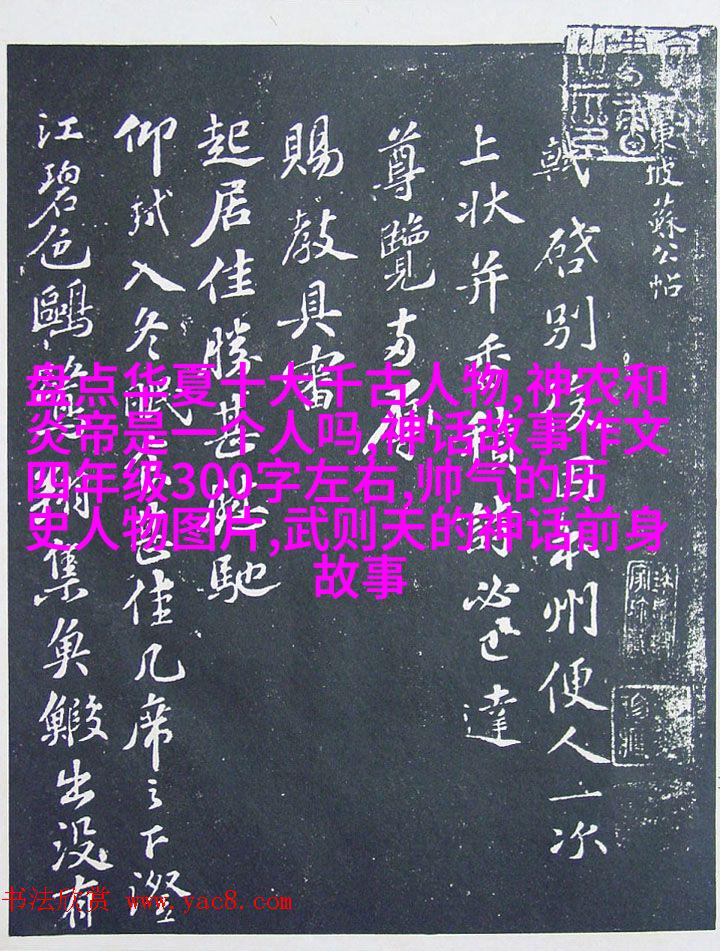 東坡蘇公帖
軾啓別後因本州便人一次
上狀并香積詩必已達
尊覽辱
賜教具審
起居佳勝甚慰馳
仰軾入冬眠食甚佳几席之下澄
江碧色鷗鷺翔集魚鰕出沒有
盘点华夏十大千古人物,神农和
炎帝是一个人吗,神话故事作文
四年级300字左右,帅气的历
史人物图片,武则天的神话前身
故事
书法欣赏 www.yac8.com